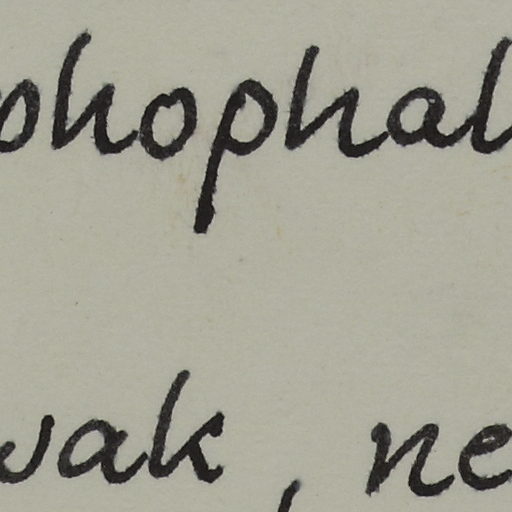 phophal
wak, ne